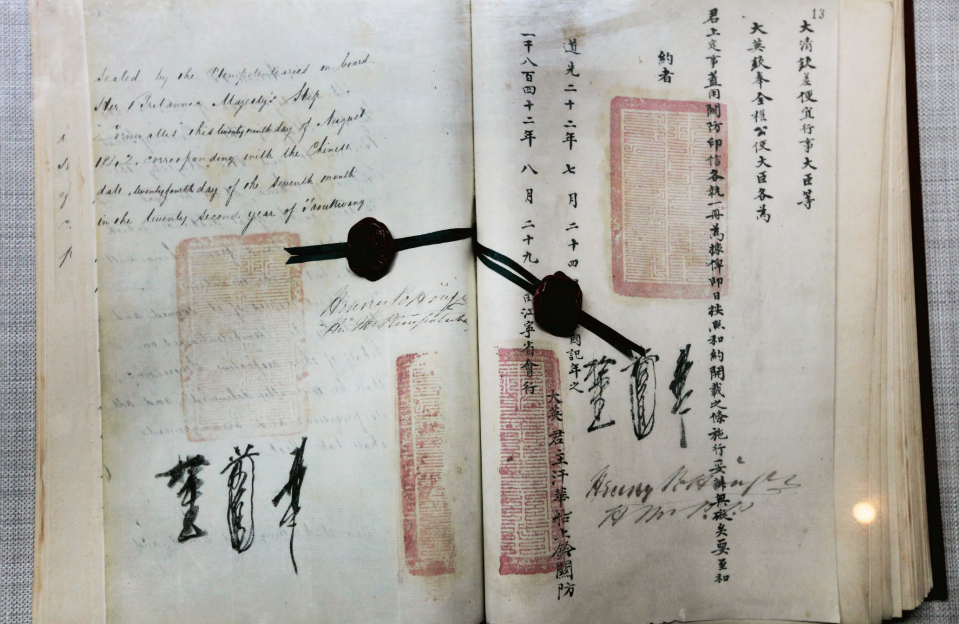 Sealed by the Plenipotentiaries on board
Her Britannic Majesty's Ship
"Cornwallis" this twenty ninth day of August
1842, corresponding with the Chinese
date, twenty fourth day of the seventh month
in the twenty second year of Taoukwang
Henry Pottinger
13
大清欽差便宜行事大臣等
大英欽奉全權公使大臣各為
君上定事蓋用關防印信各執一冊為據俾即日按照和約開載之條施行妥辦無礙矣要至和
約者
道光二十二年七月二十四 國記年之
一千八百四十二年八月二十九日由江寧省會行
大英君主汗華船上鈐關防
Henry Pottinger